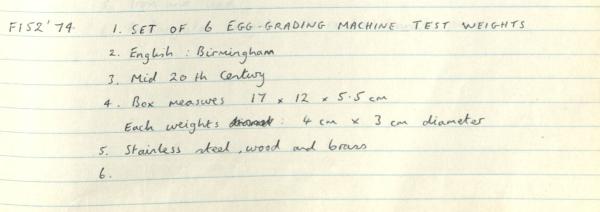 F152'74 1. SET OF 6 EGG-GRADING MACHINE TEST WEIGHTS
2. English : Birmingham
3. Mid 20th Century
4. Box measures 17 x 12 x 5.5 cm
Each weights : 4 cm x 3 cm diameter
5. Stainless steel, wood and brass
6.